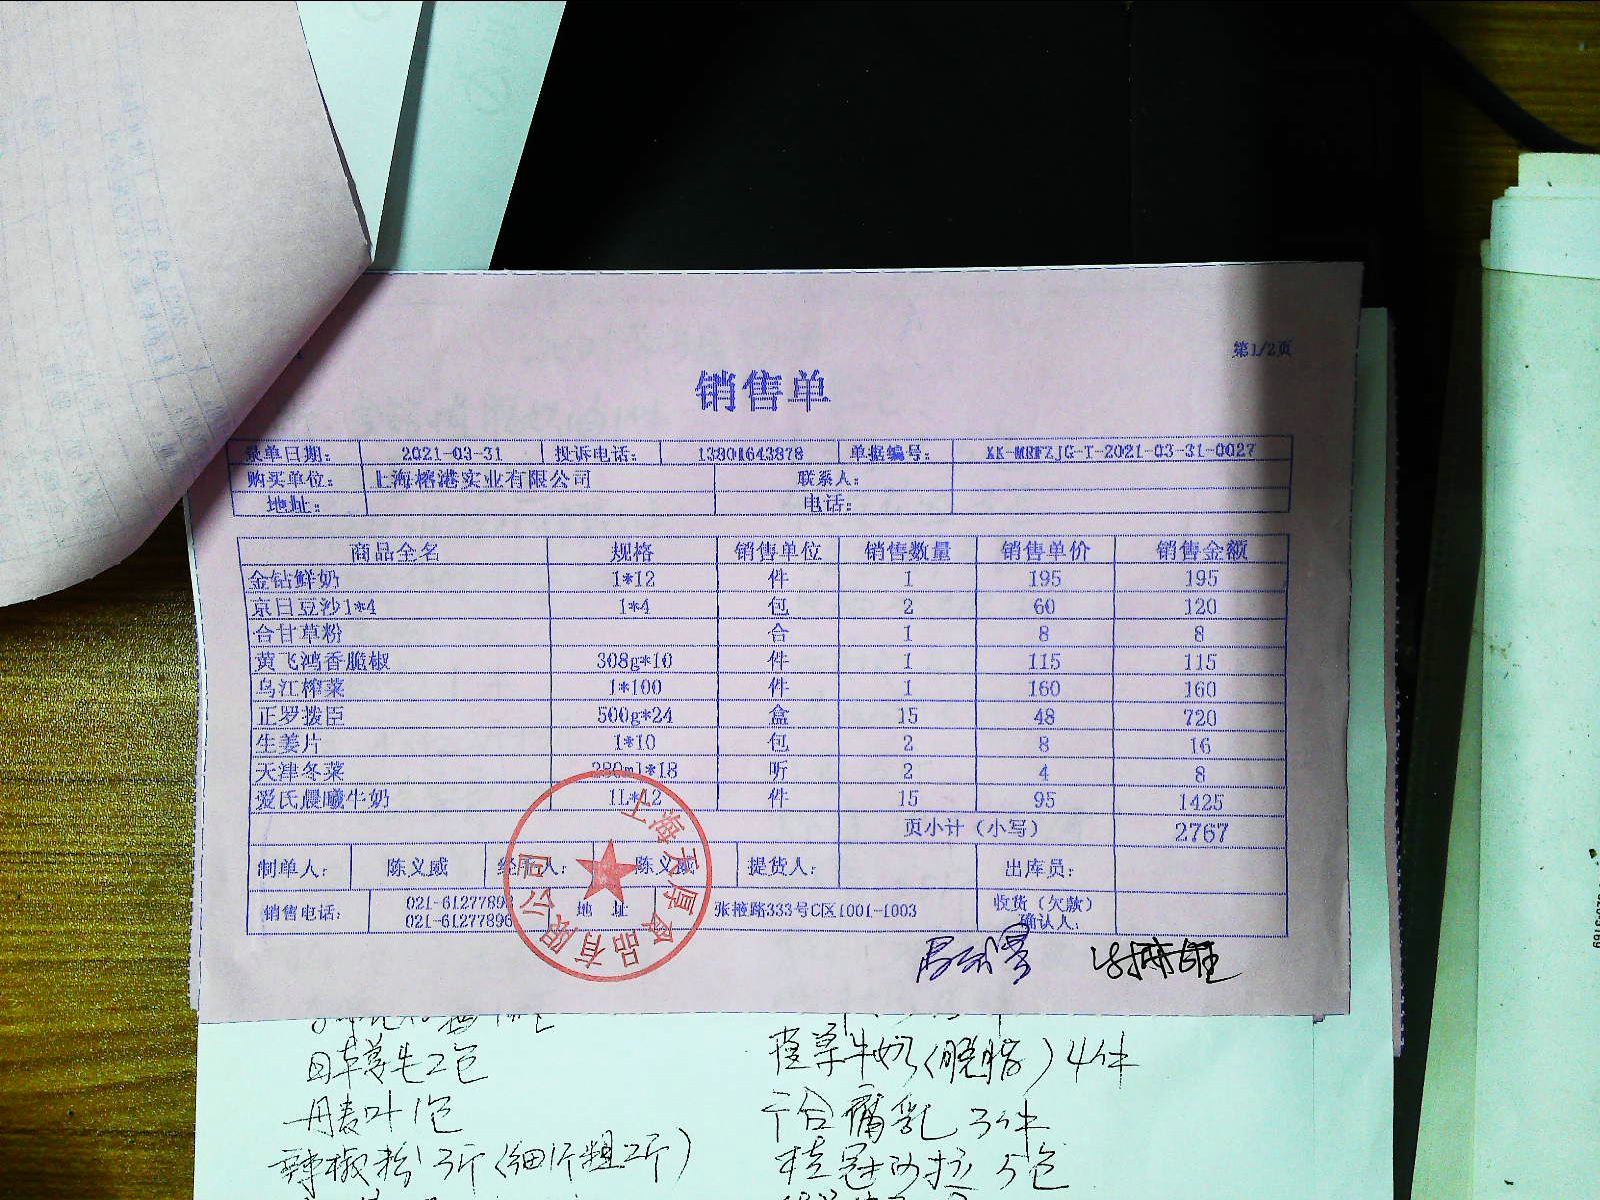 第1/2页
销售单
录单日期： 2021-03-31 投诉电话： 13801643878 单据编号： KK-MRFZJG-T-2021-03-31-0027
购买单位： 上海榕港实业有限公司 联系人：
地址： 电话：
商品全名 规格 销售单位 销售数量 销售单价 销售金额
金钻鲜奶 1*12 件 1 195 195
京日豆沙1*4 1*4 包 2 60 120
合甘草粉 合 1 8 8
黄飞鸿香脆椒 308g*10 件 1 115 115
乌江榨菜 1*100 件 1 160 160
正罗拨臣 500g*24 盒 15 48 720
生姜片 1*10 包 2 8 16
天津冬菜 280ml*18 听 2 4 8
爱氏晨曦牛奶 1L*12 件 15 95 1425
页小计（小写） 2767
制单人： 陈义威 经手人： 陈义威 提货人： 出库员：
销售电话： 021-6127789 021-61277896 地 址 张掖路333号C区1001-1003 收货（欠款）确认人：
食品有限公司
2包
1包
辣椒粉3斤(细1斤粗2斤)
牛奶(脱脂)4件
腐乳 3件
桂冠沙拉 5包